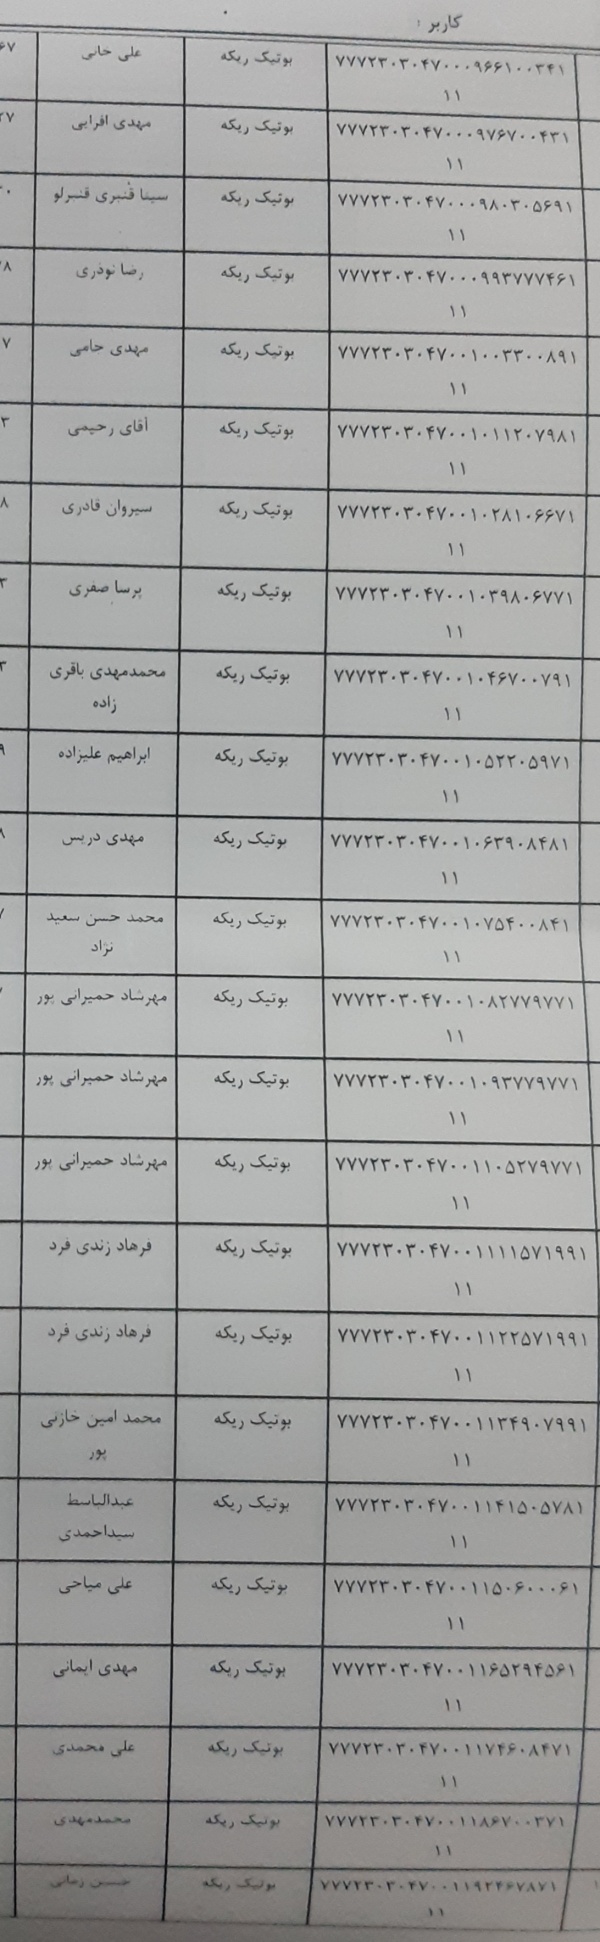 کاربر :
۷۷۷۲۳۰۳۰۴۷۰۰۰۹۶۶۱۰۰۳۴۱ بوتیک ریکه علی خانی
۱۱
۷۷۷۲۳۰۳۰۴۷۰۰۰۹۷۶۷۰۰۴۳۱ بوتیک ریکه مهدی افرایی
۱۱
۷۷۷۲۳۰۳۰۴۷۰۰۰۹۸۰۳۰۵۶۹۱ بوتیک ریکه سینا قنبری قنبرلو
۱۱
۷۷۷۲۳۰۳۰۴۷۰۰۰۹۹۳۷۷۷۴۶۱ بوتیک ریکه رضا نوذری
۱۱
۷۷۷۲۳۰۳۰۴۷۰۰۱۰۰۳۳۰۰۸۹۱ بوتیک ریکه مهدی حامی
۱۱
۷۷۷۲۳۰۳۰۴۷۰۰۱۰۱۱۲۰۷۹۸۱ بوتیک ریکه آقای رحیمی
۱۱
۷۷۷۲۳۰۳۰۴۷۰۰۱۰۲۸۱۰۶۶۷۱ بوتیک ریکه سیروان قادری
۱۱
۷۷۷۲۳۰۳۰۴۷۰۰۱۰۳۹۸۰۶۷۷۱ بوتیک ریکه پرسا صفری
۱۱
۷۷۷۲۳۰۳۰۴۷۰۰۱۰۴۶۷۰۰۷۹۱ بوتیک ریکه محمدمهدی باقری
۱۱ زاده
۷۷۷۲۳۰۳۰۴۷۰۰۱۰۵۲۲۰۵۹۷۱ بوتیک ریکه ابراهیم علیزاده
۱۱
۷۷۷۲۳۰۳۰۴۷۰۰۱۰۶۳۹۰۸۴۸۱ بوتیک ریکه مهدی دریس
۱۱
۷۷۷۲۳۰۳۰۴۷۰۰۱۰۷۵۴۰۰۸۴۱ بوتیک ریکه محمد حسن سعید
۱۱ نژاد
۷۷۷۲۳۰۳۰۴۷۰۰۱۰۸۲۷۷۹۷۷۱ بوتیک ریکه مهرشاد حمیرانی پور
۱۱
۷۷۷۲۳۰۳۰۴۷۰۰۱۰۹۳۷۷۹۷۷۱ بوتیک ریکه مهرشاد حمیرانی پور
۱۱
۷۷۷۲۳۰۳۰۴۷۰۰۱۱۰۵۲۷۹۷۷۱ بوتیک ریکه مهرشاد حمیرانی پور
۱۱
۷۷۷۲۳۰۳۰۴۷۰۰۱۱۱۱۵۷۱۹۹۱ بوتیک ریکه فرهاد زندی فرد
۱۱
۷۷۷۲۳۰۳۰۴۷۰۰۱۱۲۲۵۷۱۹۹۱ بوتیک ریکه فرهاد زندی فرد
۱۱
۷۷۷۲۳۰۳۰۴۷۰۰۱۱۳۴۹۰۷۹۹۱ بوتیک ریکه محمد امین خازنی
۱۱ پور
۷۷۷۲۳۰۳۰۴۷۰۰۱۱۴۱۵۰۵۷۸۱ بوتیک ریکه عبدالباسط
۱۱ سیداحمدی
۷۷۷۲۳۰۳۰۴۷۰۰۱۱۵۰۶۰۰۰۶۱ بوتیک ریکه علی میاحی
۱۱
۷۷۷۲۳۰۳۰۴۷۰۰۱۱۶۵۲۹۴۵۶۱ بوتیک ریکه مهدی ایمانی
۱۱
۷۷۷۲۳۰۳۰۴۷۰۰۱۱۷۴۶۰۸۴۷۱ بوتیک ریکه علی محمدی
۱۱
۷۷۷۲۳۰۳۰۴۷۰۰۱۱۸۶۷۰۰۳۷۱ بوتیک ریکه محمدمهدی
۱۱
۷۷۷۲۳۰۳۰۴۷۰۰۱۱۹۲۴۶۷۸۷۱ بوتیک ریکه حسین زمانی
۱۱